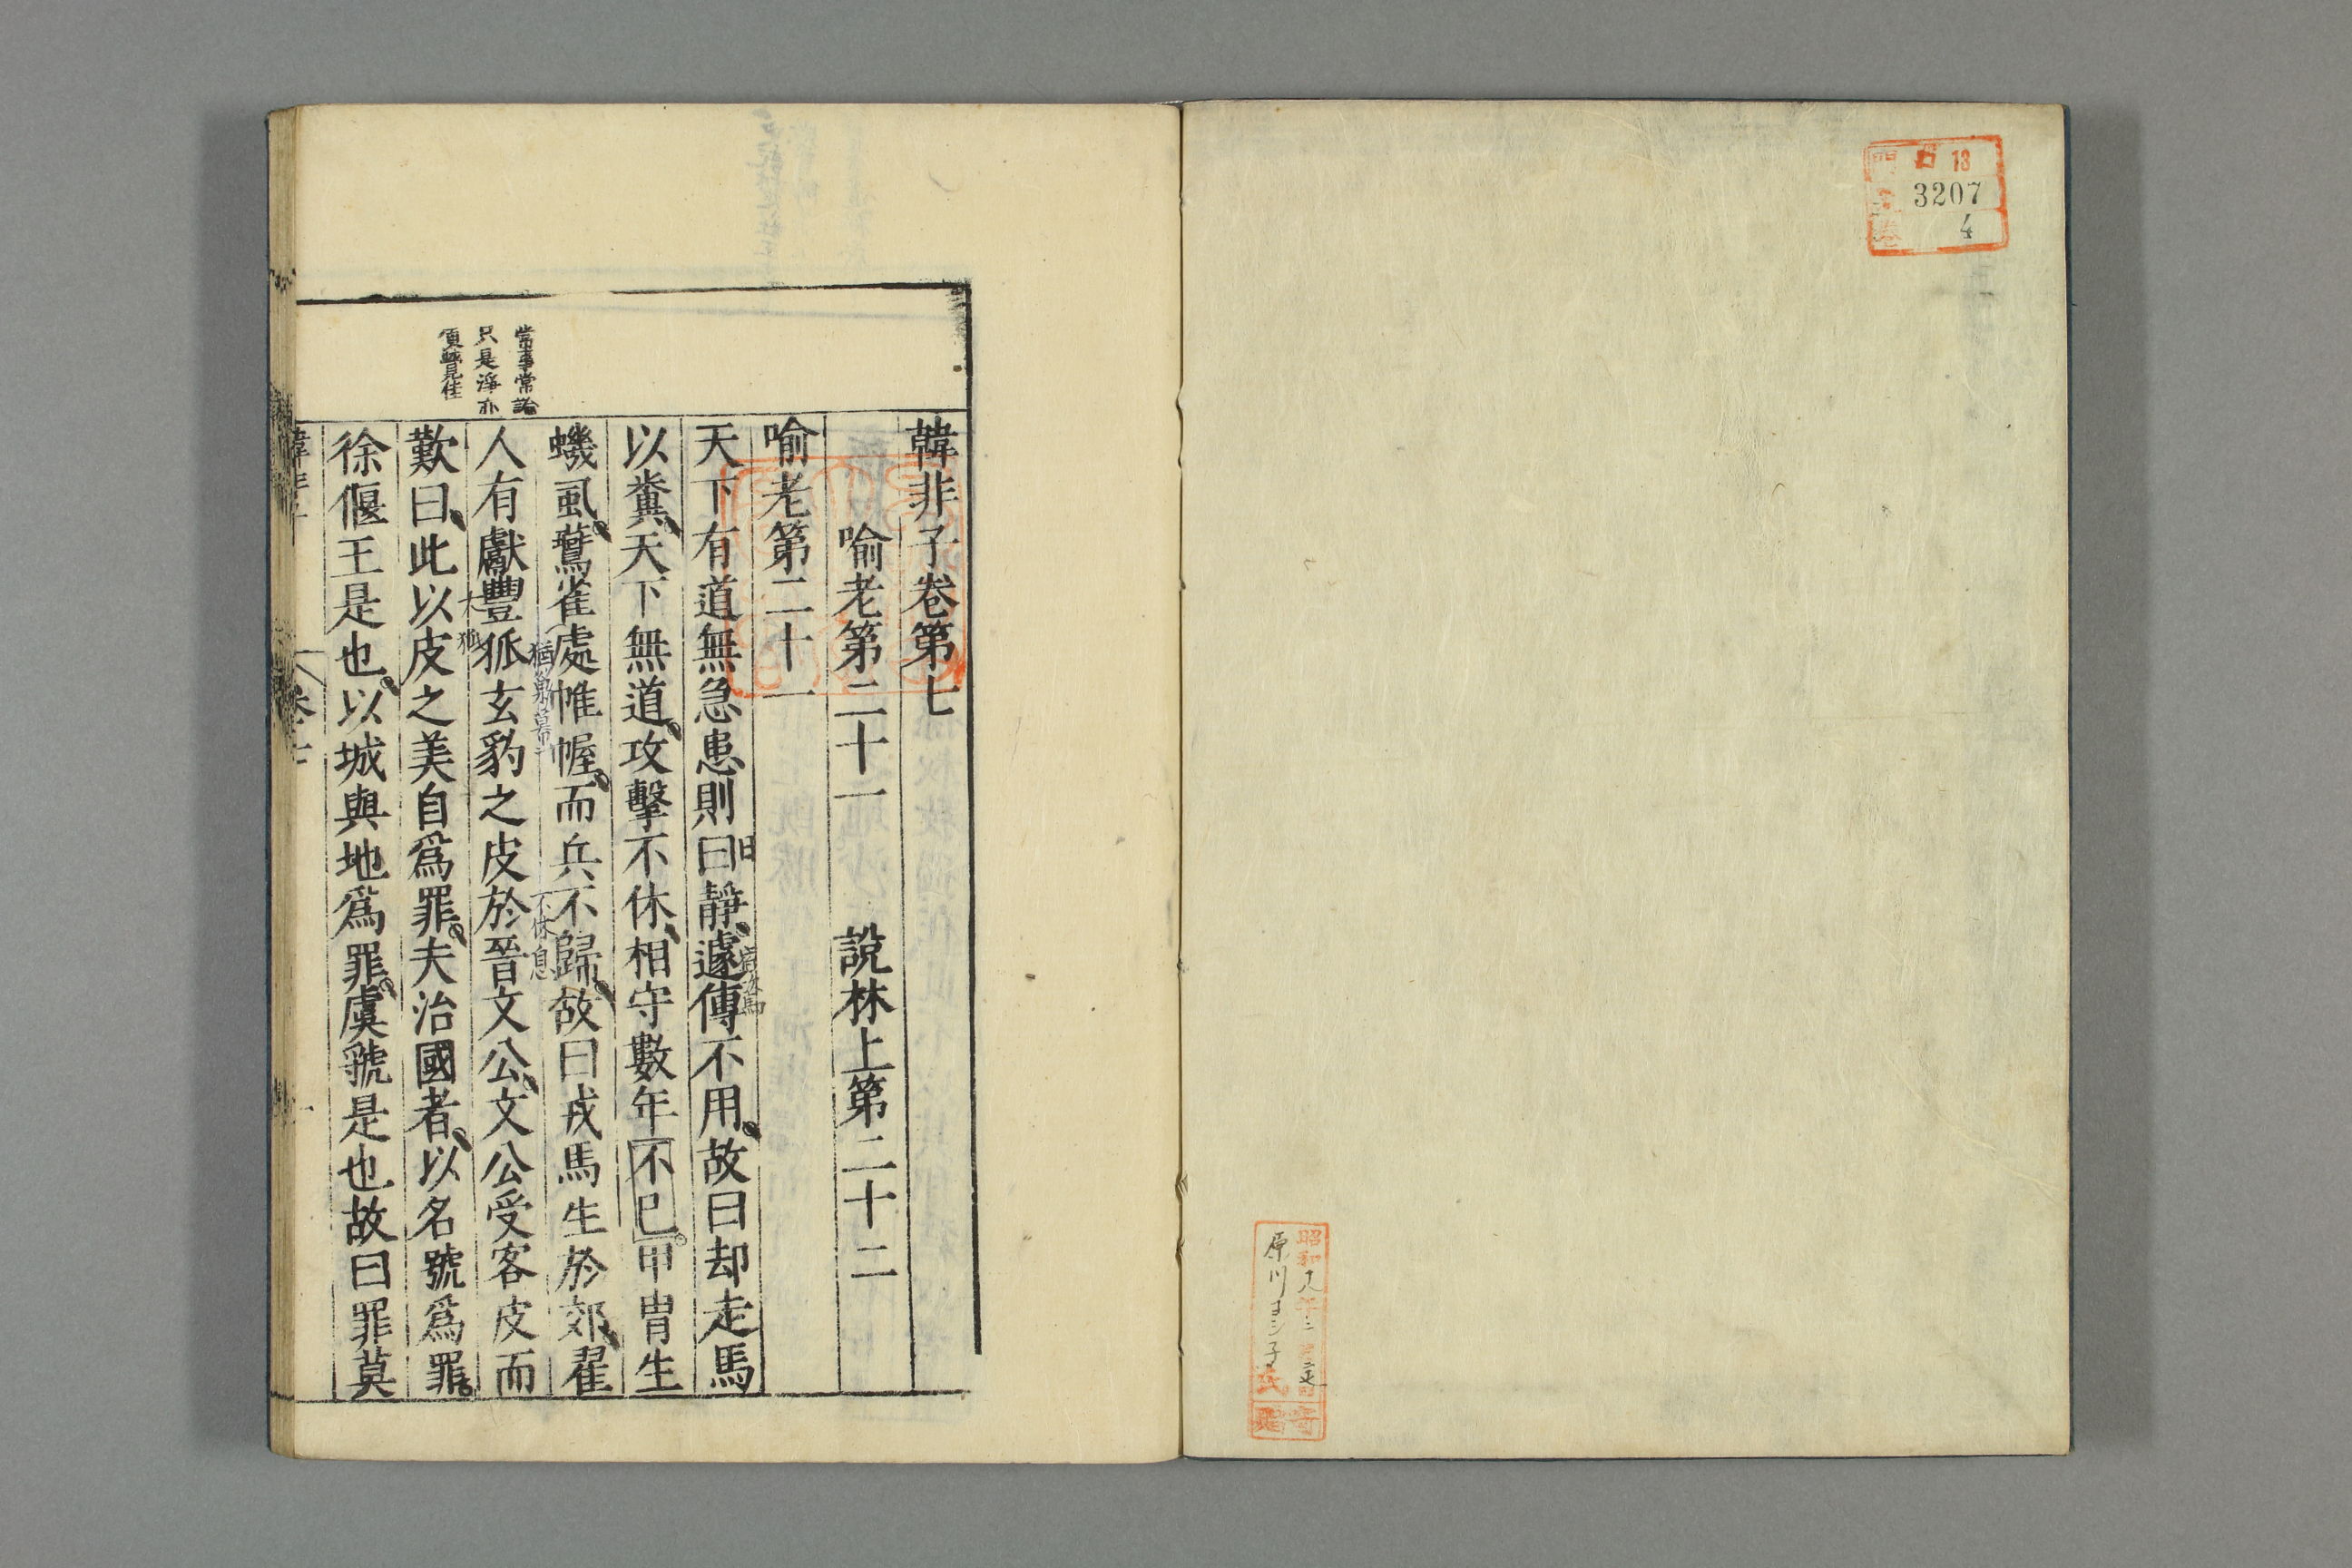 13
3207
4
昭和
原川ヨシ子氏
寄贈
韓非子卷第七
喻老第二十一 說林上第二十二
喻老第二十一
天下有道無急患則曰靜遽傳不用故曰却走馬
以糞天下無道攻擊不休相守數年不已甲冑生
蟣虱鷰雀處帷幄而兵不歸故曰戎馬生於郊翟
人有獻豐狐玄豹之皮於晉文公文公受客皮而
歎曰此以皮之美自爲罪夫治國者以名號爲罪
徐偃王是也以城與地爲罪虞虢是也故曰罪莫
常事常論
只是淨亦
不休息
韓非子 卷七 一